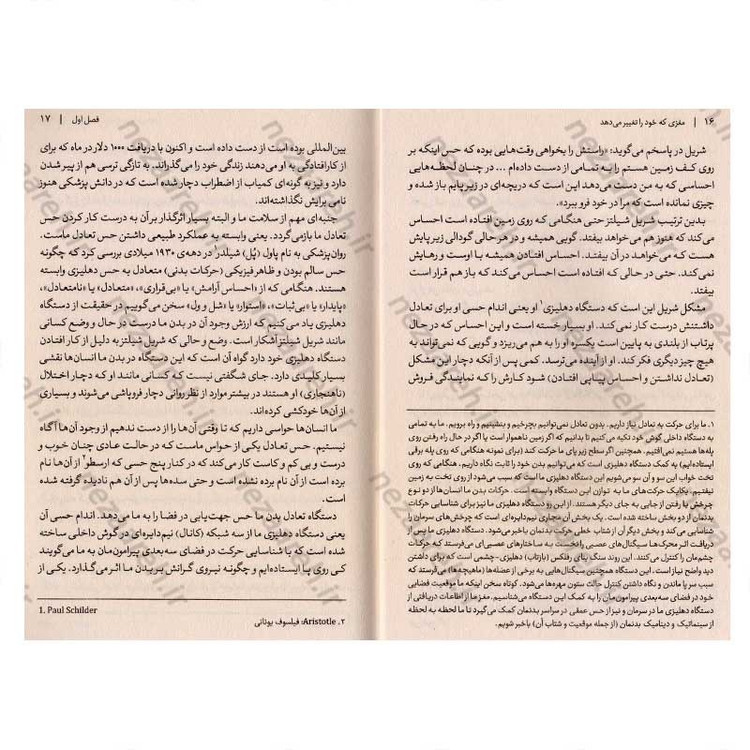 ۱۶ | مغزی که خود را تغییر می‌دهد
شریل در پاسخم می‌گوید: «راستش را بخواهی وقت‌هایی بوده که حس اینکه بر
روی کف زمین هستم را به تمامی از دست داده‌ام ... در چنان لحظه‌هایی
احساسی که به من دست می‌دهد این است که دریچه‌ای در زیر پایم باز شده و
چیزی نمانده است که مرا در خود فرو ببرد».
بدین ترتیب شریل شیلتز حتی هنگامی که روی زمین افتاده است احساس
می‌کند که هنوز هم می‌خواهد بیفتد. گویی همیشه و در هر حالی گودالی زیر پایش
هست که می‌خواهد در آن بیفتد. احساس افتادن همیشه با اوست و رهایش
نمی‌کند. حتی در حالی که افتاده است احساس می‌کند که باز هم قرار است
بیفتد.
مشکل شریل این است که دستگاه دهلیزی۱ او یعنی اندام حسی او برای تعادل
داشتنش درست کار نمی‌کند. او بسیار خسته است و این احساس که در حال
پرتاب از بلندی به پایین است یکسره او را به هم می‌ریزد و گویی که نمی‌تواند به
هیچ چیز دیگری فکر کند. او از آینده می‌ترسد. کمی پس از آنکه دچار این مشکل
(تعادل نداشتن و احساس پیاپی افتادن) شود کارش را که نمایندگی فروش
۱. ما برای حرکت به تعادل نیاز داریم. بدون تعادل نمی‌توانیم بچرخیم و بنشینیم و راه برویم. ما به تمامی
به دستگاه داخلی گوش خود تکیه می‌کنیم تا بدانیم که اگر زمین ناهموار است یا اگر در حال راه رفتن روی
پله‌ها هستیم نمی‌افتیم. همچنین اگر سطح زیر پای ما حرکت کند (برای نمونه هنگامی که روی پله برقی
ایستاده‌ایم) به کمک دستگاه دهلیزی است که می‌توانیم بدن خود را ثابت نگاه داریم. هنگامی که روی
تخت خواب این سو و آن سو می‌شویم این دستگاه ماست که سبب می‌شود از روی تخت به زمین
نیفتیم. یکایک حرکت‌های ما به توازن این دستگاه وابسته است. حرکات بدن ما انسان‌ها از دو نوع
چرخش یا رفتن از جایی به جای دیگر هستند. از این رو دستگاه دهلیزی ما نیز برای شناسایی حرکات
بدنمان از دو بخش ساخته شده است. یک بخش آن مجاری نیم‌دایره‌ای است که چرخش‌های سرمان را
شناسایی می‌کند و بخش دیگر آن از شتاب خطی حرکت بدنمان آگاه می‌شود. دستگاه دهلیزی ما پس از
دریافت محرک‌ها سیگنال‌های عصبی را نخست به ساختارهای عصبی‌ای می‌فرستد که حرکات
چشمان را کنترل می‌کنند. این روند سنگ بنای رفلکس (بازتاب) دهلیزی-چشمی است که برای داشتن
دید واضح نیاز است. این دستگاه همچنین سیگنال‌هایی به برخی از عضله‌ها (ماهیچه‌ها) می‌فرستد که
سبب سر پا ماندن و نگاه داشتن کنترل حالت ستون مهره‌ها می‌شود. کوتاه سخن اینکه ما موقعیت فضایی
خود در فضای سه‌بعدی پیرامونمان را به کمک این دستگاه می‌شناسیم. مغز ما از اطلاعات دریافتی از
دستگاه دهلیزی ما در سرمان و نیز از حس عمقی در سراسر بدنمان کمک می‌گیرد تا ما لحظه به لحظه
از سینماتیک و دینامیک بدنمان (از جمله موقعیت و شتاب آن) باخبر شویم.
فصل اول | ۱۷
بین‌المللی بوده است از دست داده است و اکنون با دریافت ۱۰۰۰ دلار در ماه که برای
از کارافتادگی به او می‌دهند زندگی خود را می‌گذراند. به تازگی ترسی هم از پیر شدن
دارد و نیز به گونه‌ای کمیاب از اضطراب دچار شده است که در دانش پزشکی هنوز
نامی برایش نگذاشته‌اند.
جنبه‌ای مهم از سلامت ما و البته بسیار اثرگذار بر آن به درست کار کردن حس
تعادل ما بازمی‌گردد. یعنی وابسته به عملکرد طبیعی داشتن حس تعادل ماست.
روان‌پزشکی به نام پاول (پُل) شیلدر۱ در دهه‌ی ۱۹۳۰ میلادی بررسی کرد که چگونه
حس سالم بودن و ظاهر فیزیکی (حرکات بدنی) «متعادل» به حس دهلیزی وابسته
هستند. هنگامی که از «احساس آرامش» یا «بی‌قراری»، «متعادل» یا «نامتعادل»،
«پایدار» یا «بی‌ثبات»، «استوار» یا «شل و ول» سخن می‌گوییم در حقیقت از دستگاه
دهلیزی یاد می‌کنیم که ارزش وجود آن در بدن ما درست در حال و وضع کسانی
مانند شریل شیلتز آشکار است. وضع و حالی که شریل شیلتز به دلیل از کار افتادن
دستگاه دهلیزی خود دارد گواه آن است که این دستگاه در بدن ما انسان‌ها نقشی
بسیار کلیدی دارد. جای شگفتی نیست که کسانی مانند او که دچار اختلال
(ناهنجاری) او هستند در بیشتر موارد از نظر روانی دچار فروپاشی می‌شوند و بسیاری
از آن‌ها خودکشی کرده‌اند.
ما انسان‌ها حواسی داریم که تا وقتی آن‌ها را از دست ندهیم از وجود آن‌ها آگاه
نیستیم. حس تعادل یکی از حواس ماست که در حالت عادی چنان خوب و
درست و بی کم و کاست کار می‌کند که در کنار پنج حسی که ارسطو۲ از آن‌ها نام
برده است از آن نام برده نشده است و حتی سده‌ها پس از آن هم نادیده گرفته شده
است.
دستگاه تعادل بدن ما حس جهت‌یابی در فضا را به ما می‌دهد. اندام حسی آن
یعنی دستگاه دهلیزی ما از سه شبکه (کانال) نیم‌دایره‌ای در گوش داخلی ساخته
شده است که با شناسایی حرکت در فضای سه‌بعدی پیرامون‌مان به ما می‌گویند
کی روی پا ایستاده‌ایم و چگونه نیروی گرانش بر بدن ما اثر می‌گذارد. یکی از
1. Paul Schilder
۲. Aristotle: فیلسوف یونانی
nezareh.ir